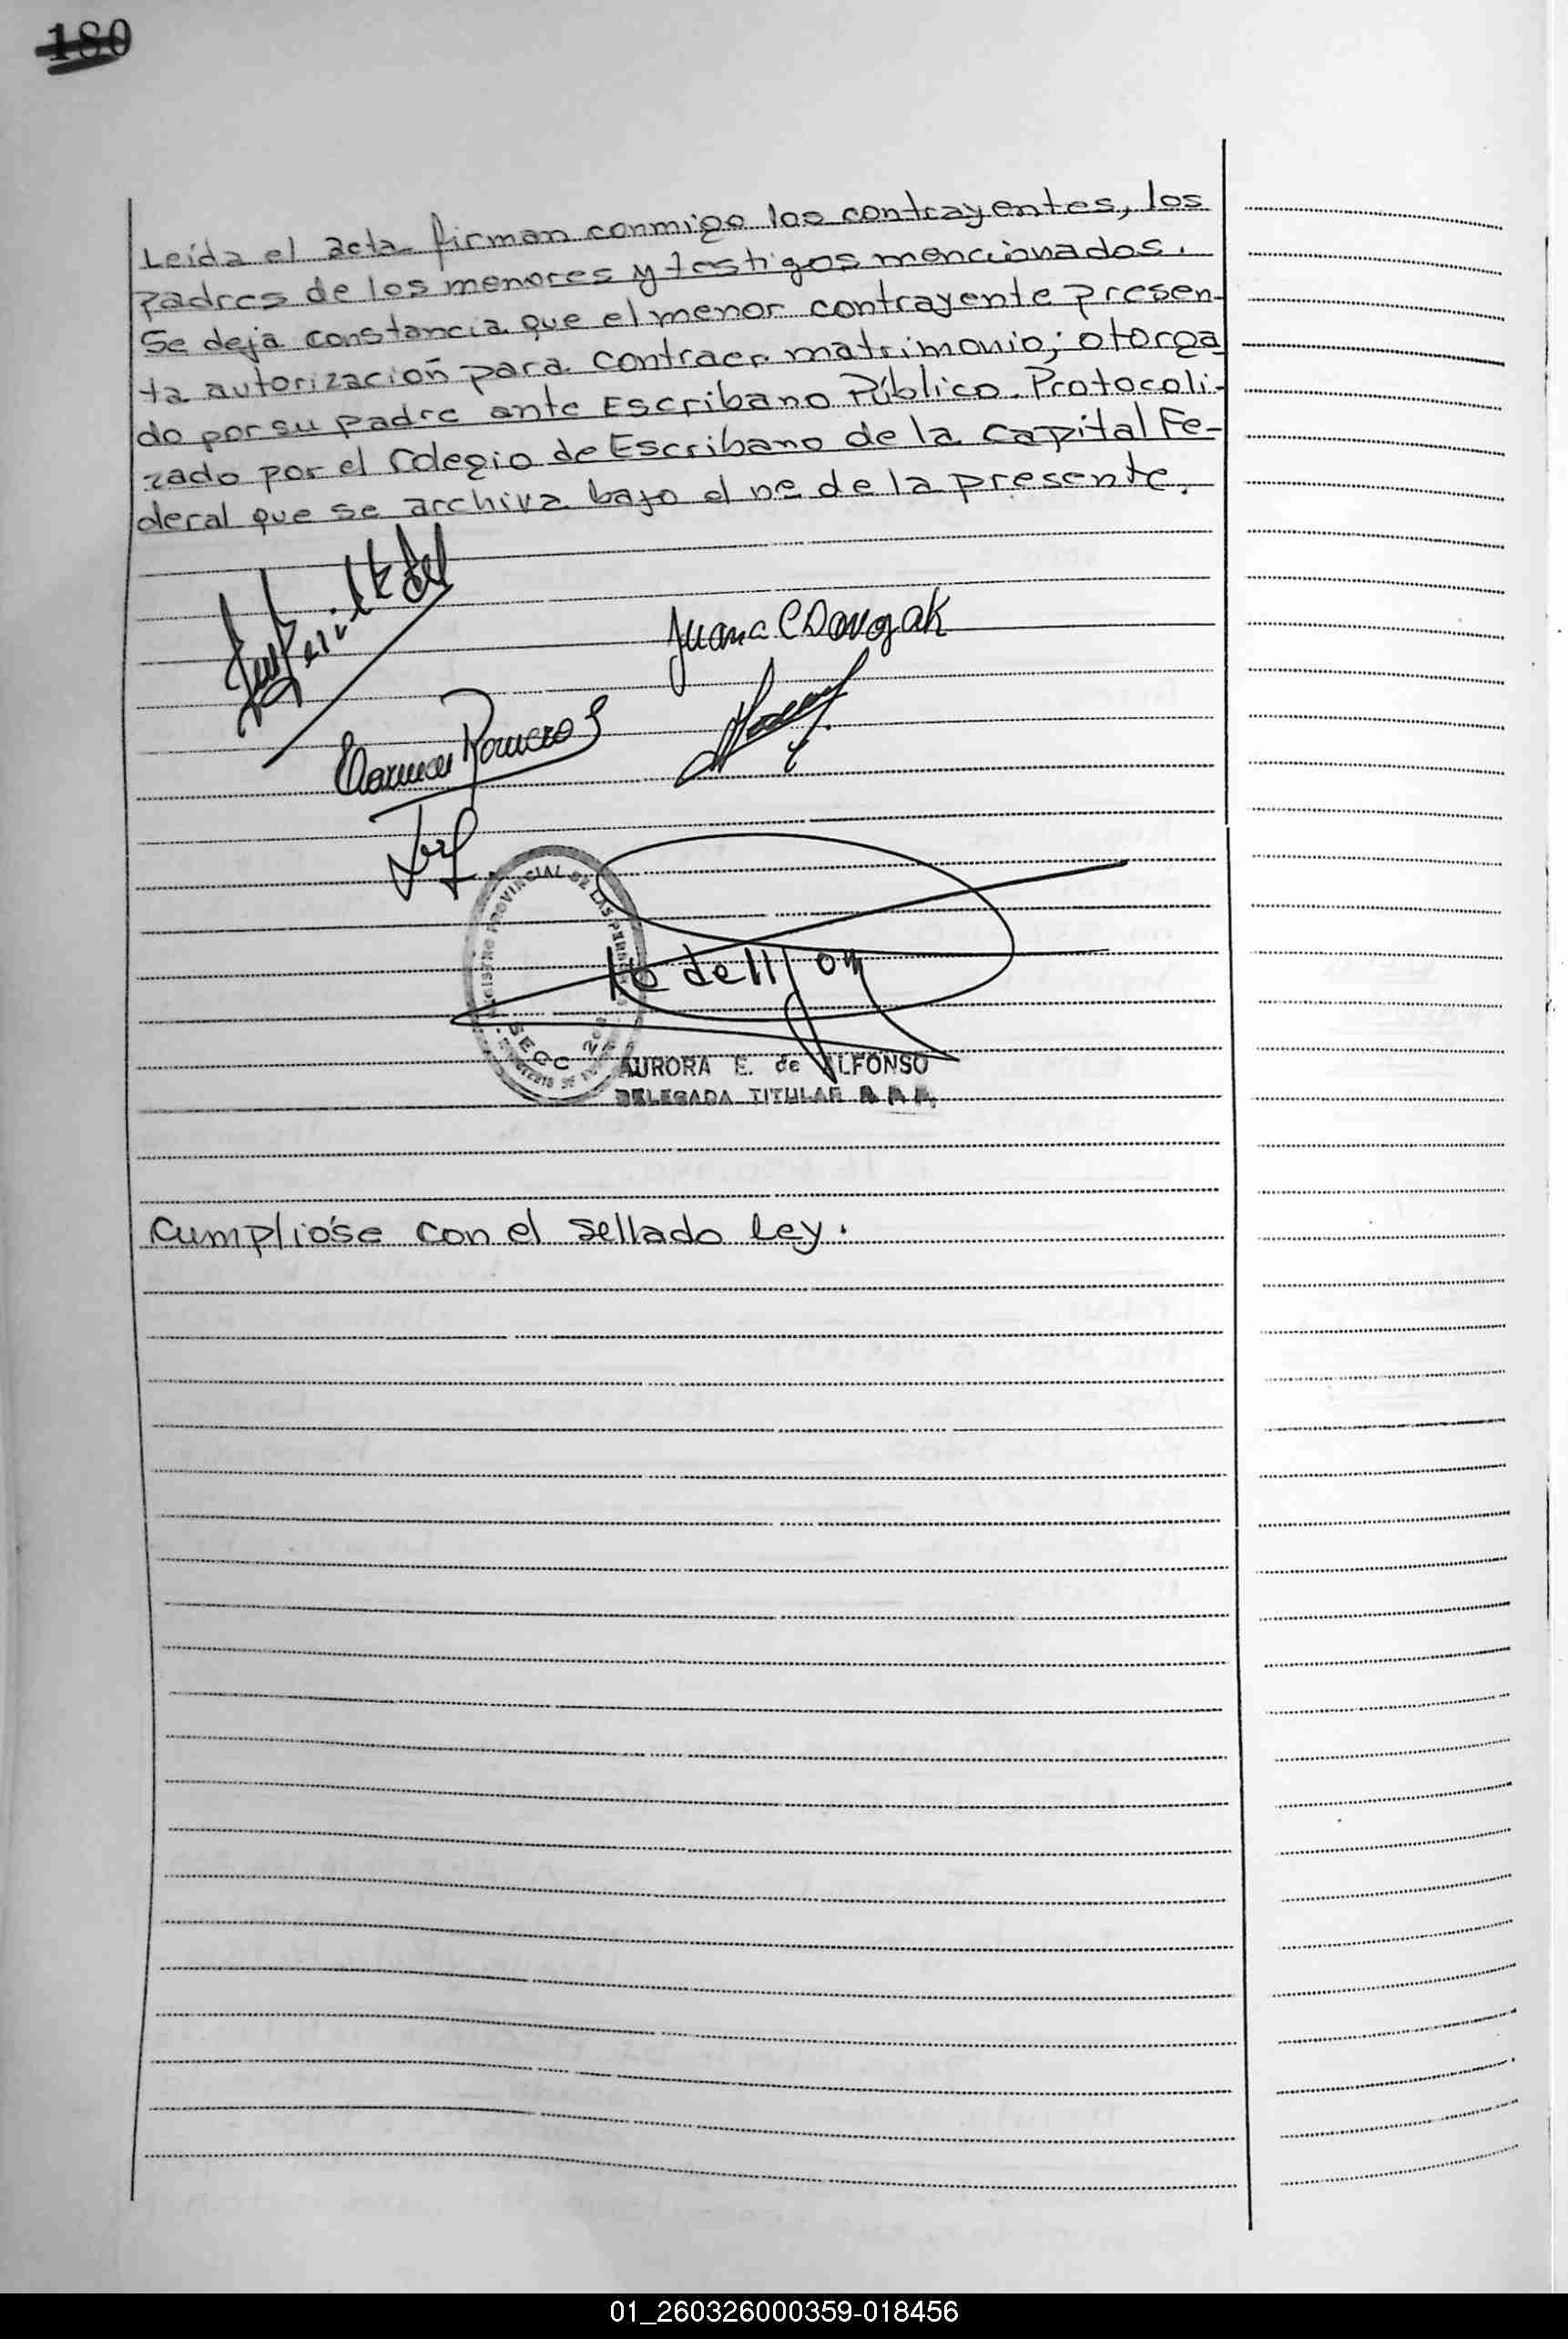 180
Leída el acta firman conmigo los contrayentes, los
padres de los menores y testigos mencionados.
Se deja constancia que el menor contrayente presen-
ta autorización para contraer matrimonio; otorga
do por su padre ante Escribano Público. Protocoli-
zado por el Colegio de Escribano de la Capital Fe-
deral que se archiva bajo el nº de la presente.
Juana C Dongak
Carmen Romero
REGISTRO PROVINCIAL DE LAS PERSONAS
SECC
AURORA E. de ALFONSO
DELEGADA TITULAR R.P.P.
Cumplióse con el sellado ley.
01_260326000359-018456